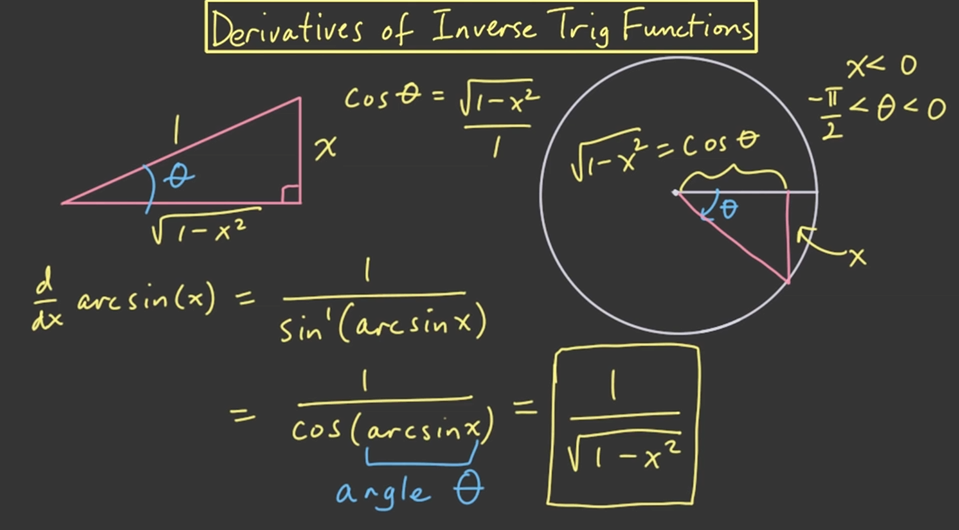 Derivatives of Inverse Trig Functions
1
θ
x
√1-x²
cos θ = √1-x² / 1
x < 0
-π/2 < θ < 0
√1-x² = cos θ
θ
x
d/dx arcsin(x) = 1 / sin'(arcsin x)
= 1 / cos(arcsin x) = 1 / √1-x²
angle θ